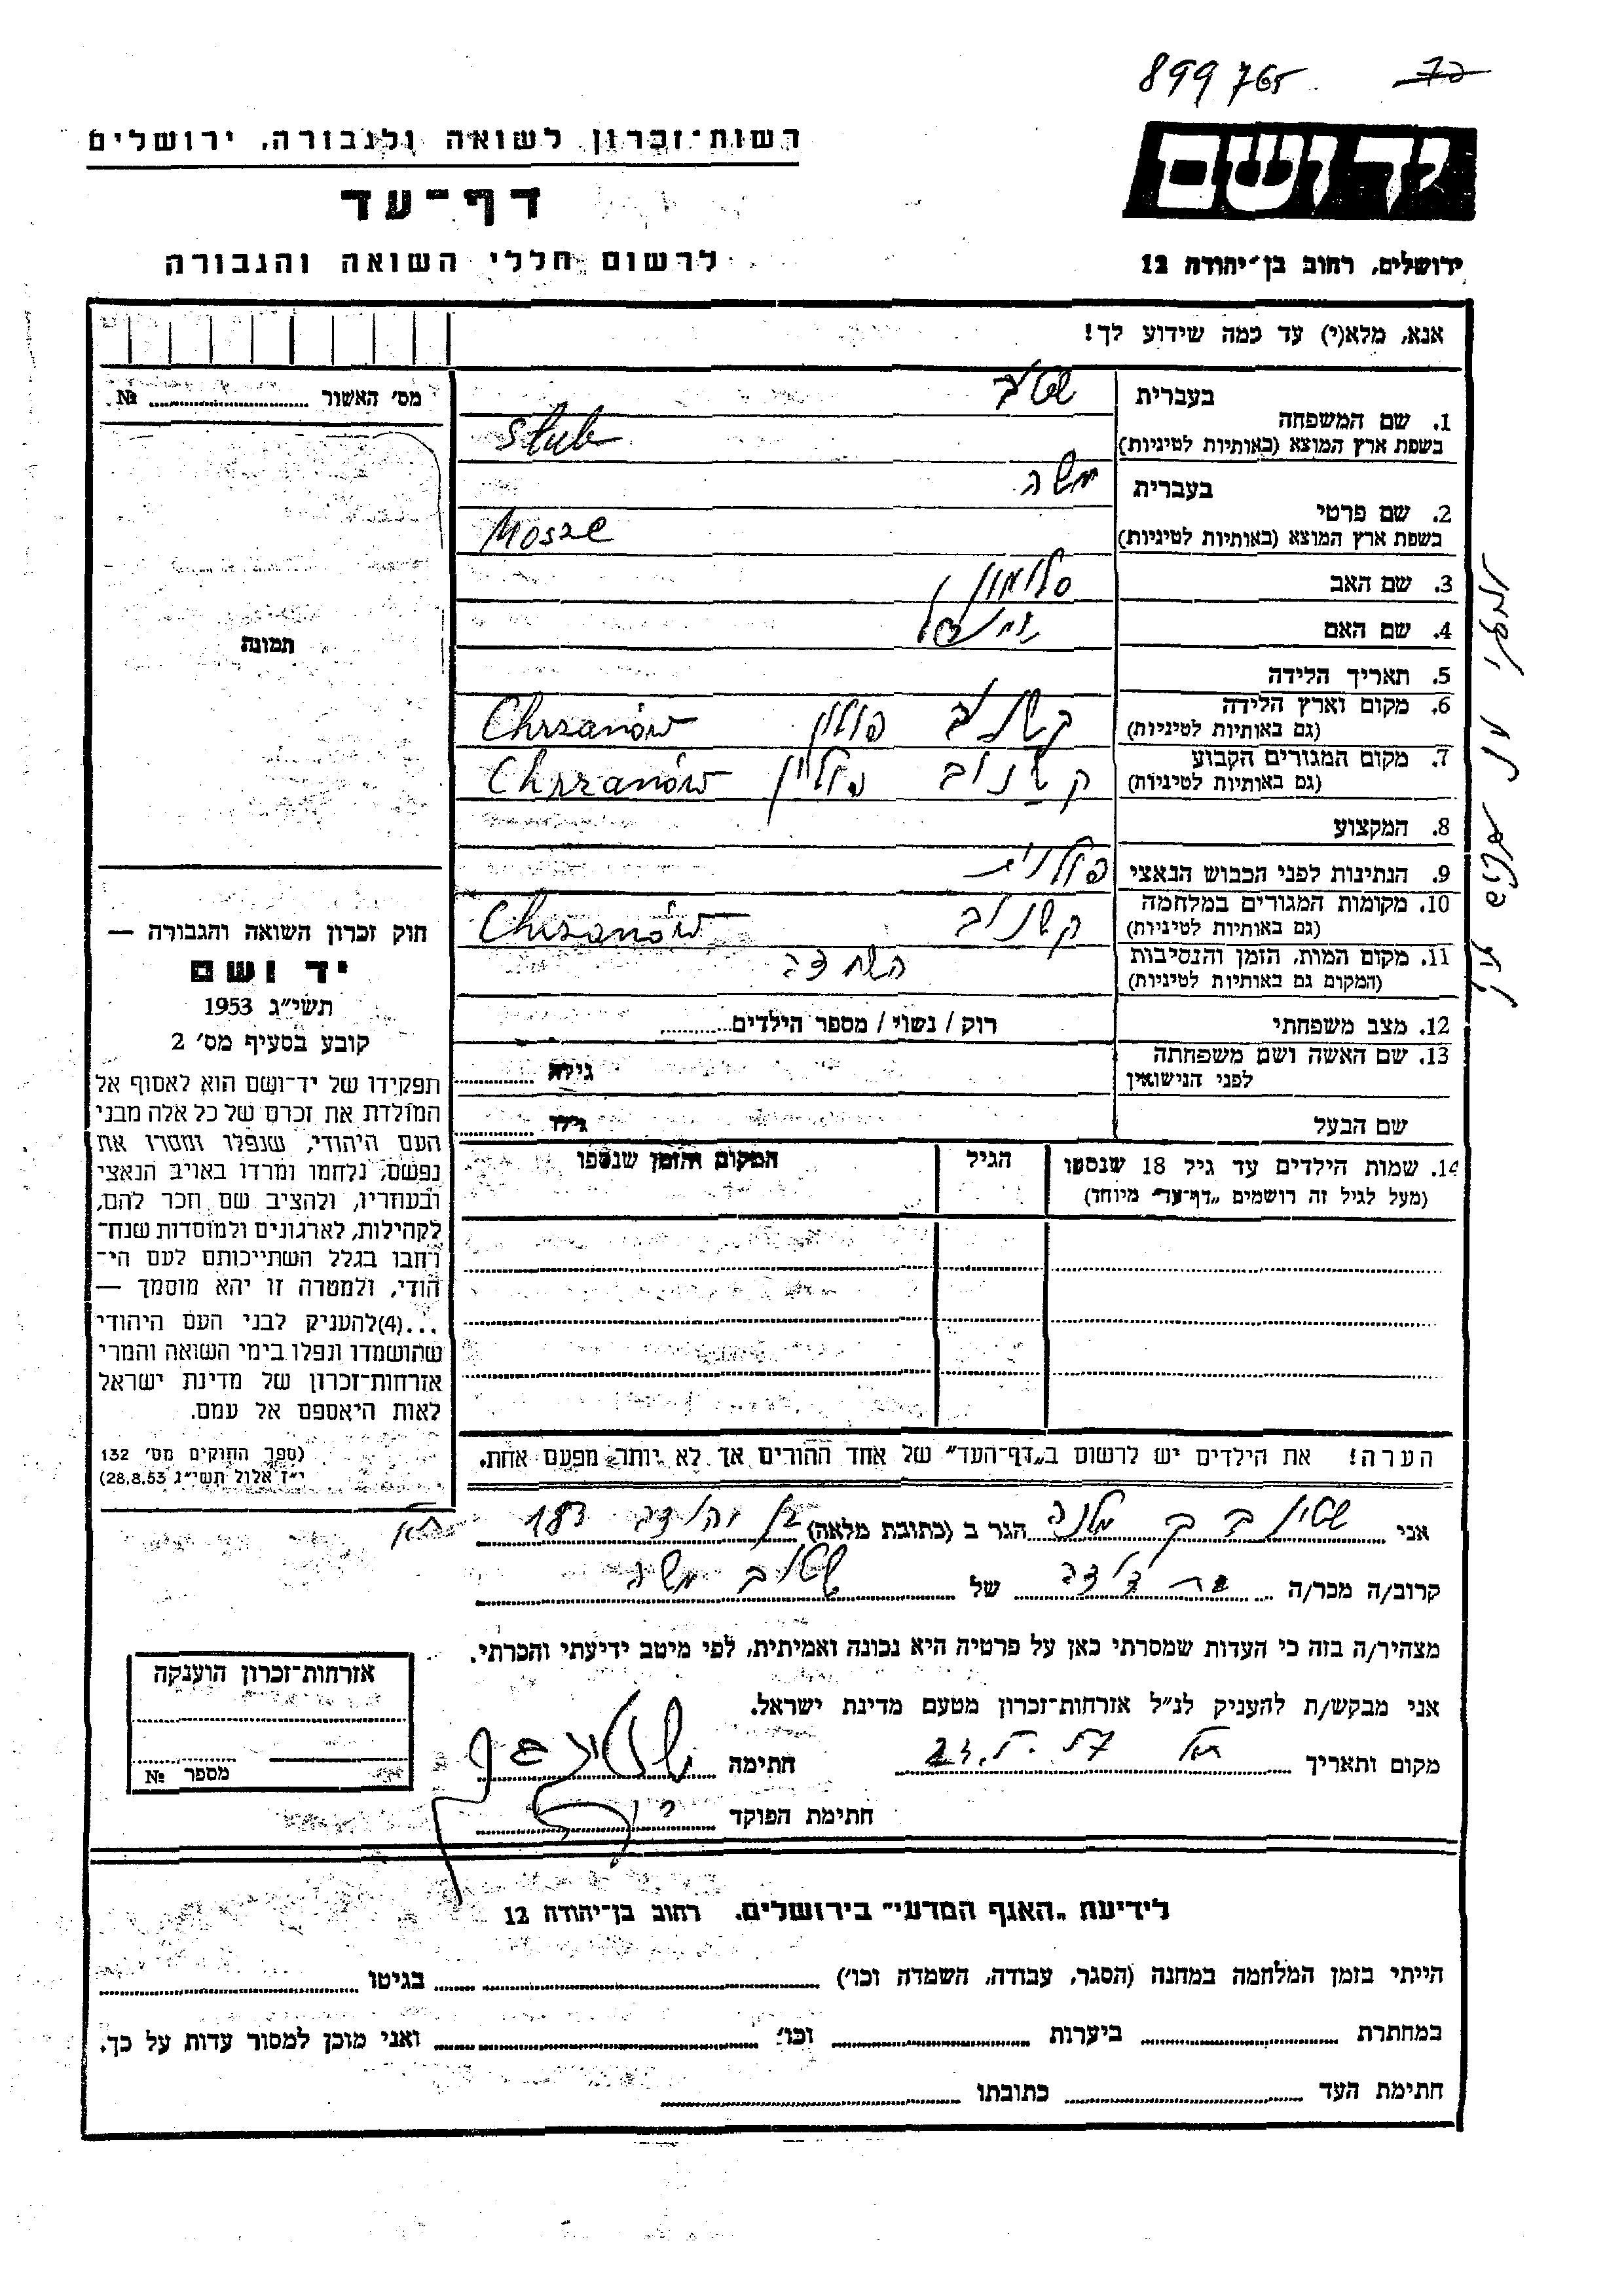 899765 72
רשות־זכרון לשואה ולגבורה, ירושלים
יד ושם
דף־עד
לרשום חללי השואה והגבורה
ירושלים, רחוב בן־יהודה 12
אנא, מלא(י) עד כמה שידוע לך!
מס׳ האשור № 
בעברית שטוב
1. שם המשפחה
בשפת ארץ המוצא (באותיות לטיניות) Stub
בעברית משה
2. שם פרטי
בשפת ארץ המוצא (באותיות לטיניות) Mosze
3. שם האב סלומון
4. שם האם
5. תאריך הלידה
6. מקום וארץ הלידה קשנוב פולין Chrzanów
(גם באותיות לטיניות)
7. מקום המגורים הקבוע קשנוב פולין Chrzanów
(גם באותיות לטיניות)
8. המקצוע
9. הנתינות לפני הכבוש הנאצי פולנית
10. מקומות המגורים במלחמה קשנוב Chrzanów
(גם באותיות לטיניות)
11. מקום המות, הזמן והנסיבות
(המקום גם באותיות לטיניות)
12. מצב משפחתי רוק / נשוי / מספר הילדים
13. שם האשה ושם משפחתה גילה
לפני הנישואין
שם הבעל גילו
14. שמות הילדים עד גיל 18 שנספו הגיל המקום והזמן שנספו
(מעל לגיל זה רושמים „דף־עד” מיוחד)
הערה! את הילדים יש לרשום ב„דף־העד” של אחד ההורים אך לא יותר מפעם אחת.
תמונה
חוק זכרון השואה והגבורה —
יד ושם
תשי״ג 1953
קובע בסעיף מס׳ 2
תפקידו של יד־ושם הוא לאסוף אל
המולדת את זכרם של כל אלה מבני
העם היהודי, שנפלו ומסרו את
נפשם, נלחמו ומרדו באויב הנאצי
ובעוזריו, ולהציב שם וזכר להם,
לקהילות, לארגונים ולמוסדות שנח־
רבו בגלל השתייכותם לעם הי־
הודי, ולמטרה זו יהא מוסמך —
...(4)להעניק לבני העם היהודי
שהושמדו ונפלו בימי השואה והמרי
אזרחות־זכרון של מדינת ישראל
לאות היאספם אל עמם.
(ספר החוקים מס׳ 132
י״ז אלול תשי״ג 28.8.53)
אני הגר ב (כתובת מלאה)
קרוב/ה מכר/ה בת דודה של שטוב משה
מצהיר/ה בזה כי העדות שמסרתי כאן על פרטיה היא נכונה ואמיתית, לפי מיטב ידיעתי והכרתי.
אני מבקש/ת להעניק לנ״ל אזרחות־זכרון מטעם מדינת ישראל.
מקום ותאריך חתימה
חתימת הפוקד
אזרחות־זכרון הוענקה
מספר №
לידיעת „האגף המדעי” בירושלים, רחוב בן־יהודה 12
הייתי בזמן המלחמה במחנה (הסגר, עבודה, השמדה וכו׳) בגיטו
במחתרת ביערות וכו׳ ואני מוכן למסור עדות על כך.
חתימת העד כתובתו